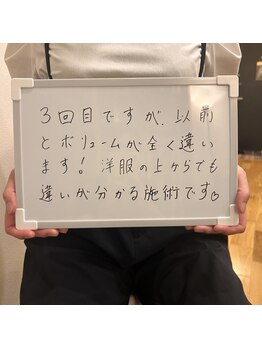 3回目ですが、以前
とボリュームが全く違い
ます！洋服の上からでも
違いが分かる施術です♡